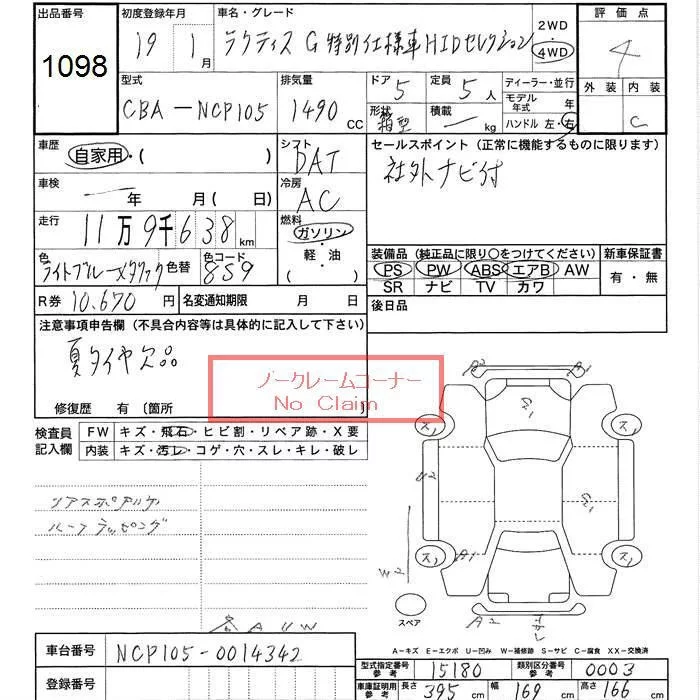 出品番号
1098
初度登録年月
19 1月
車名・グレード
ラクティス G 特別仕様車HIDセレクション
2WD
4WD
評価点
4
外装 内装
C
型式
CBA-NCP105
排気量
1490 CC
ドア 5
定員 5人
形状 箱型
積載 — kg
ディーラー・並行
モデル年式 年
ハンドル 左・右
車歴
自家用・( )
シフト
DAT
セールスポイント (正常に機能するものに限ります)
社外ナビ付
車検
— 年 月( 日)
冷房
AC
走行
11万9千638km
燃料
ガソリン・軽・油
( )
色
ライトブルーメタリック
色替
色コード
8S9
装備品 (純正品に限り○をつけてください)
PS PW ABS エアB AW
SR ナビ TV カワ
新車保証書
有・無
R券 10,670円
名変通知期限 月 日
後日品
注意事項申告欄 (不具合内容等は具体的に記入して下さい)
夏タイヤ欠品
修復歴 有 (箇所 )
ノークレームコーナー
No Claim
検査員記入欄
FW キズ・飛石・ヒビ割・リペア跡・X要
内装 キズ・汚レ・コゲ・穴・スレ・キレ・破レ
ハーフラッピング
A U W
A2 A1
ス1 ス1
U2
W2
A1
ス1 ス1
スペアー
A2
A-キズ E-エクボ U-凹み W-補修跡 S-サビ C-腐食 XX-交換済
車台番号
NCP105-0014342
登録番号
型式指定番号 参考
15180
類別区分番号 参考
0003
車庫証明用 参考
長さ 395 cm
幅 169 cm
高さ 166 cm